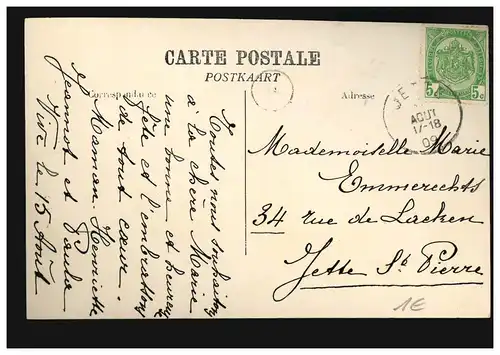 CARTE POSTALE
POSTKAART
Correspondance
Adresse
5c 5c
AOUT
17-18
Toutes nous souhaitons
à la chère Marie
une bonne et heureuse
fête et l'embrassons
de tout cœur.
Maman Henriette
Jeannot et Paula
Vive le 15 Août
Mademoiselle Marie
Emmerechts
34 rue de Laeken
Jette St Pierre
1€